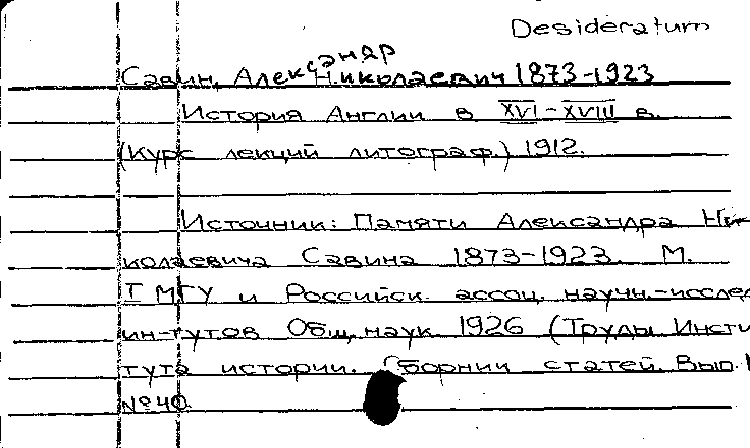 Desideratum
Савин, Александр Николаевич 1873-1923
История Англии в XVI-XVIII в.
(Курс лекций литограф.) 1912.
Источник: Памяти Александра Ни-
колаевича Савина 1873-1923. М.
I МГУ и Российск. ассоц. научн.-исслед
ин-тутов Общ. наук. 1926 (Труды Инсти
тута истории. Сборник статей. Вып.
№40.